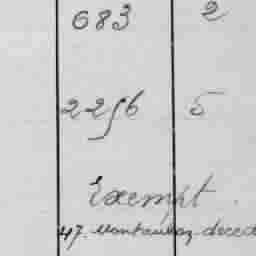 683 2
2256 5
Exempt
47. Montauban deced